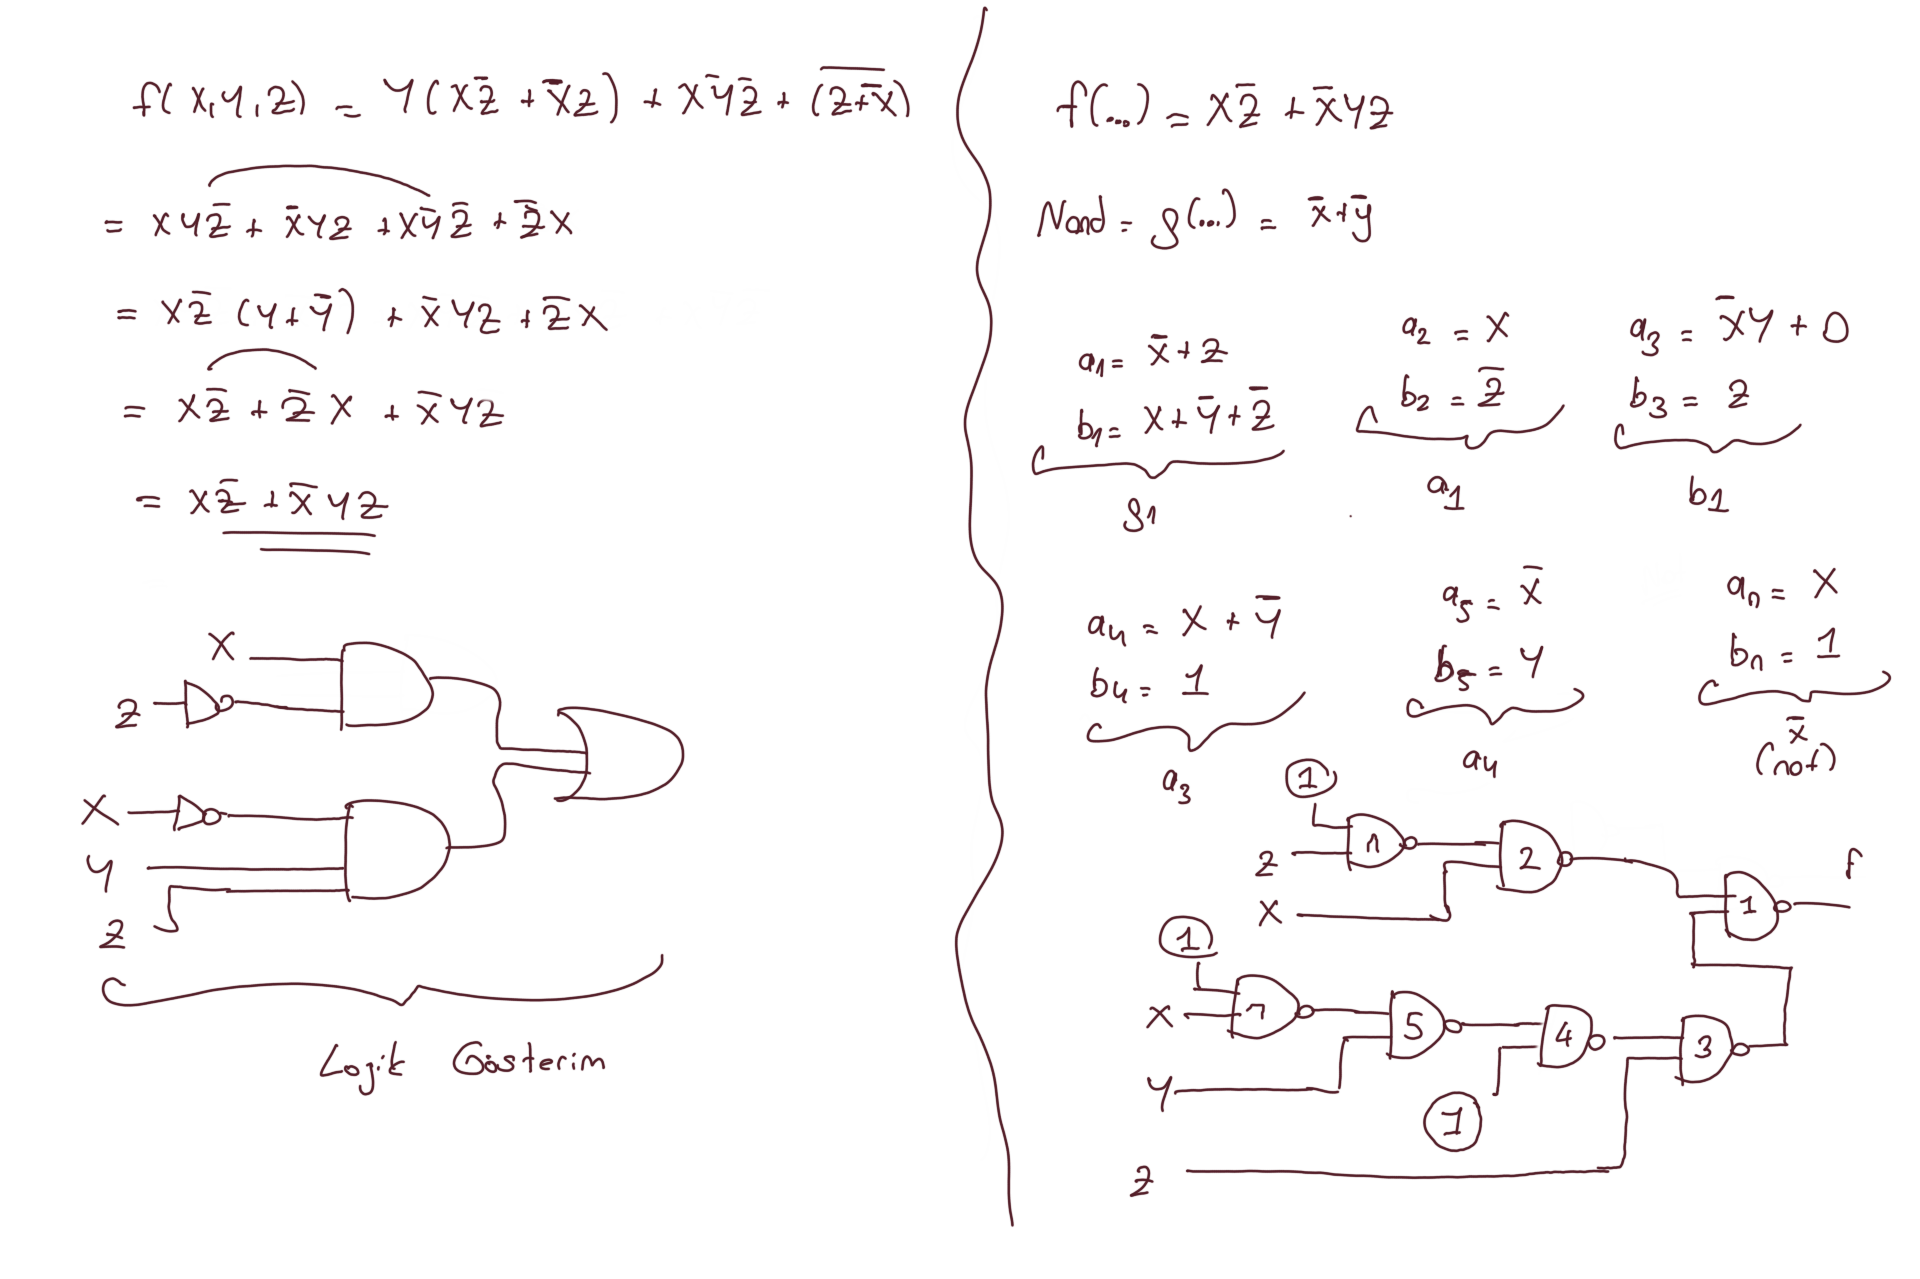 f(x,y,z) = y(xz̄ + x̄z) + xȳz̄ + (z+x̄)̅
= xyz̄ + x̄yz + xȳz̄ + z̄x
= xz̄ (y+ȳ) + x̄yz + z̄x
= xz̄ + z̄x + x̄yz
= xz̄ + x̄yz
X
Z
X
Y
Z
Logik Gösterim
f(...) = xz̄ + x̄yz
Nand = g(...) = x̄+ȳ
a1= x̄+z
b1= x+ȳ+z̄
g1
a2 = x
b2 = z̄
a1
a3 = x̄y + 0
b3 = z
b1
a4 = x + ȳ
b4 = 1
a3
a5 = x̄
b5 = y
a4
an = x
bn = 1
x̄
(not)
1
Z
X
n
2
1
f
1
X
Y
Z
n
5
4
1
3